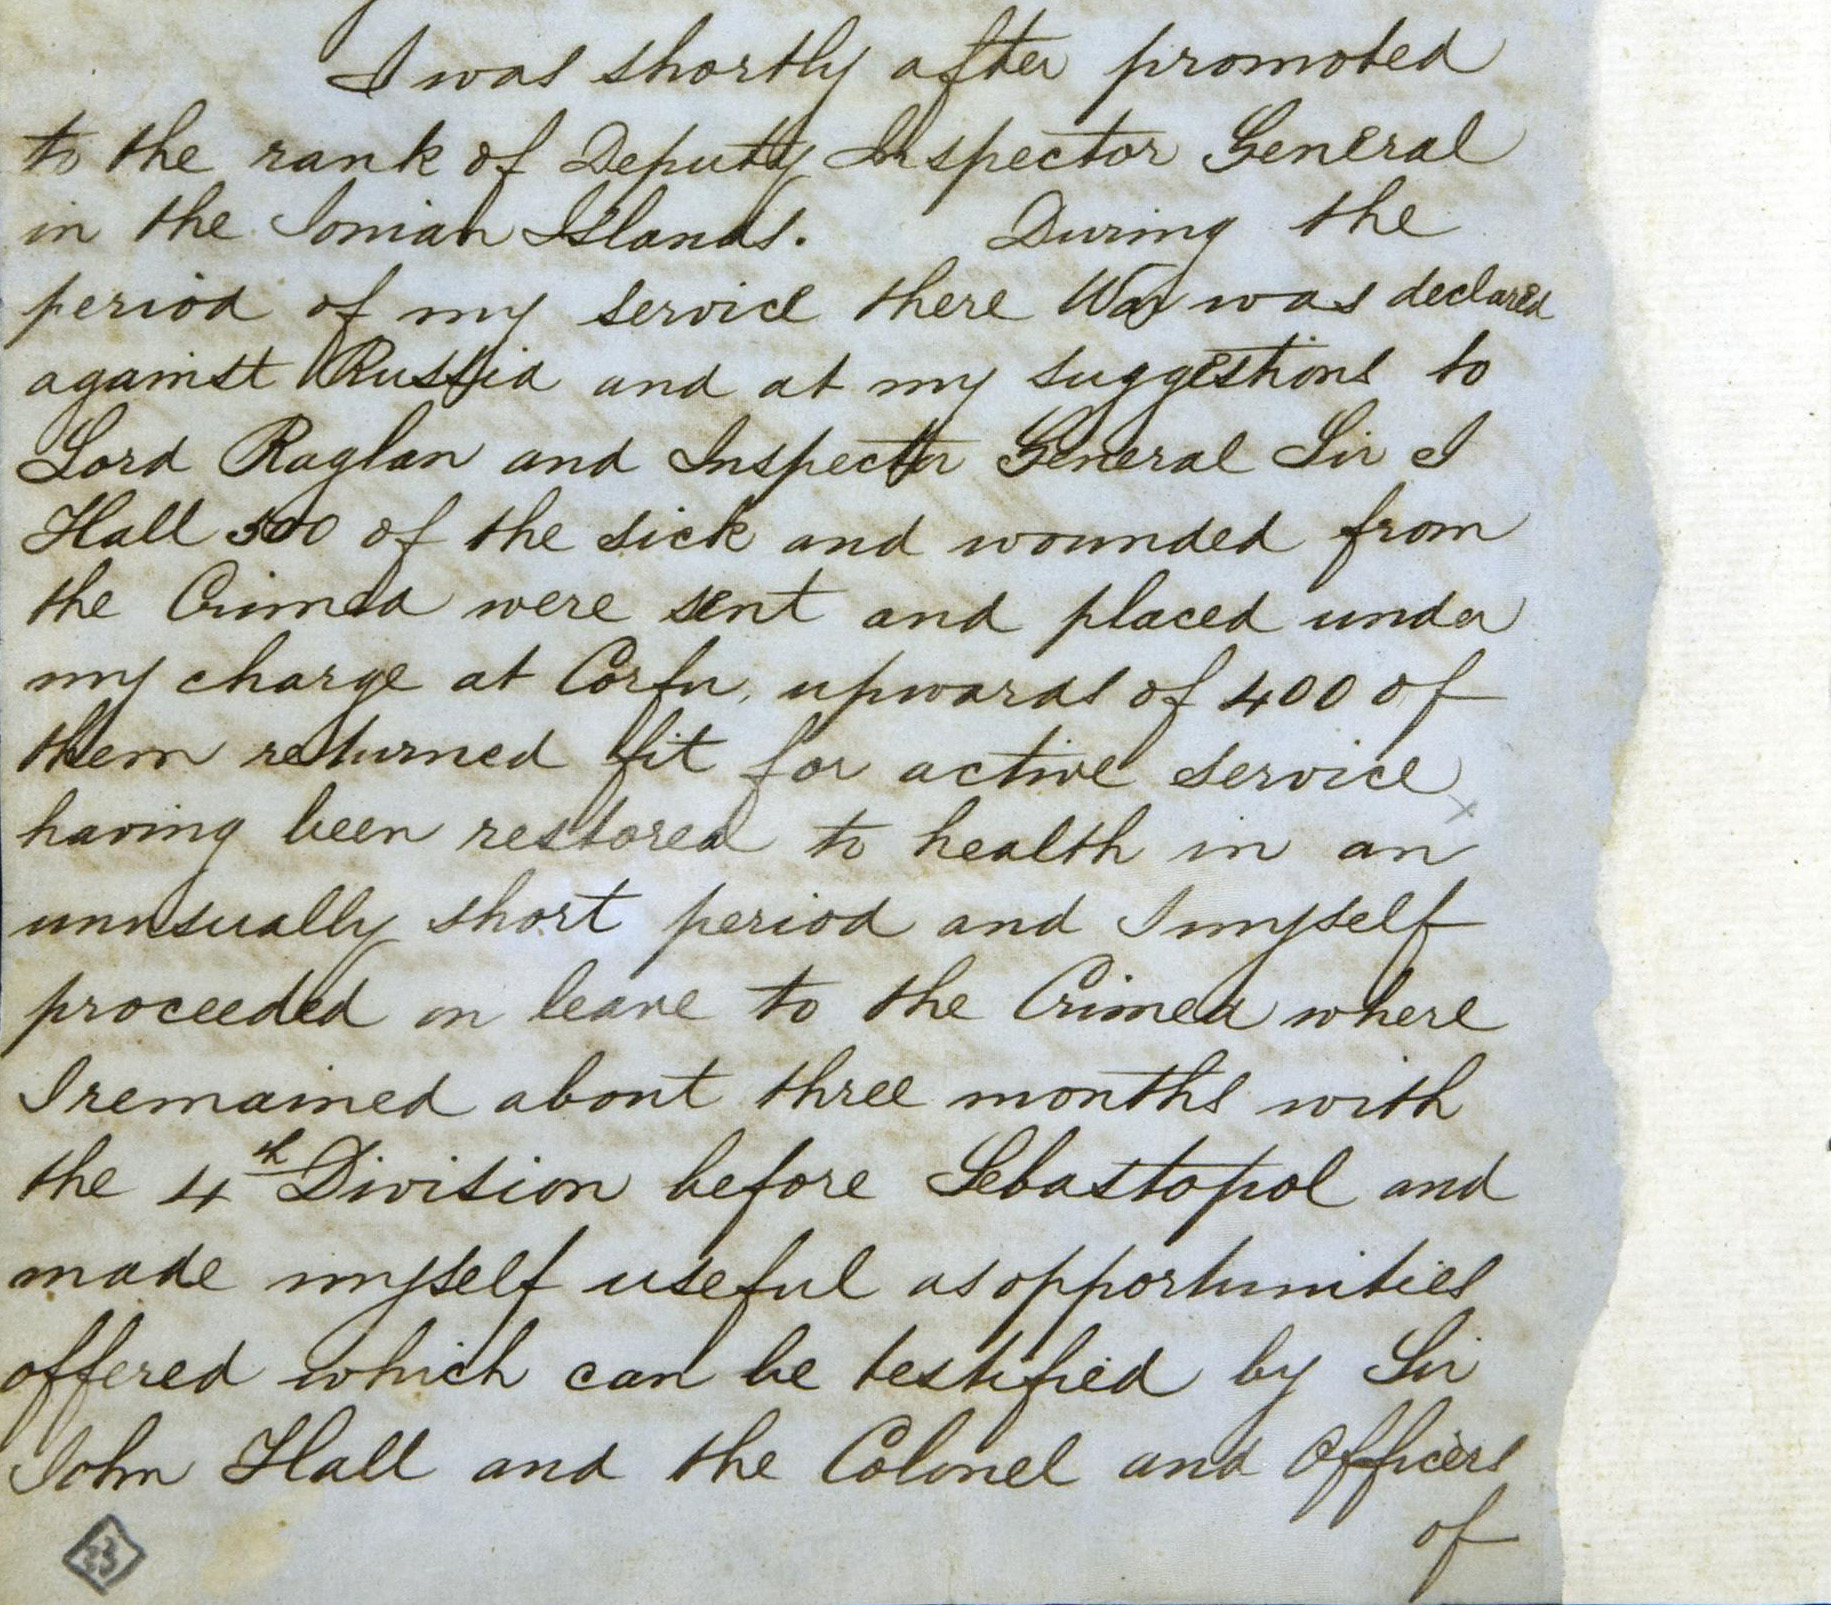 I was shortly after promoted
to the rank of Deputy Inspector General
in the Ionian Islands. During the
period of my service there War was declared
against Russia and at my suggestions to
Lord Raglan and Inspector General Sir J
Hall 500 of the sick and wounded from
the Crimea were sent and placed under
my charge at Corfu, upwards of 400 of
them returned fit for active service
having been restored to health in an
unusually short period and I myself
proceeded on leave to the Crimea where
I remained about three months with
the 4th Division before Sebastopol and
made myself useful as opportunities
offered which can be testified by Sir
John Hall and the Colonel and Officers
of
33